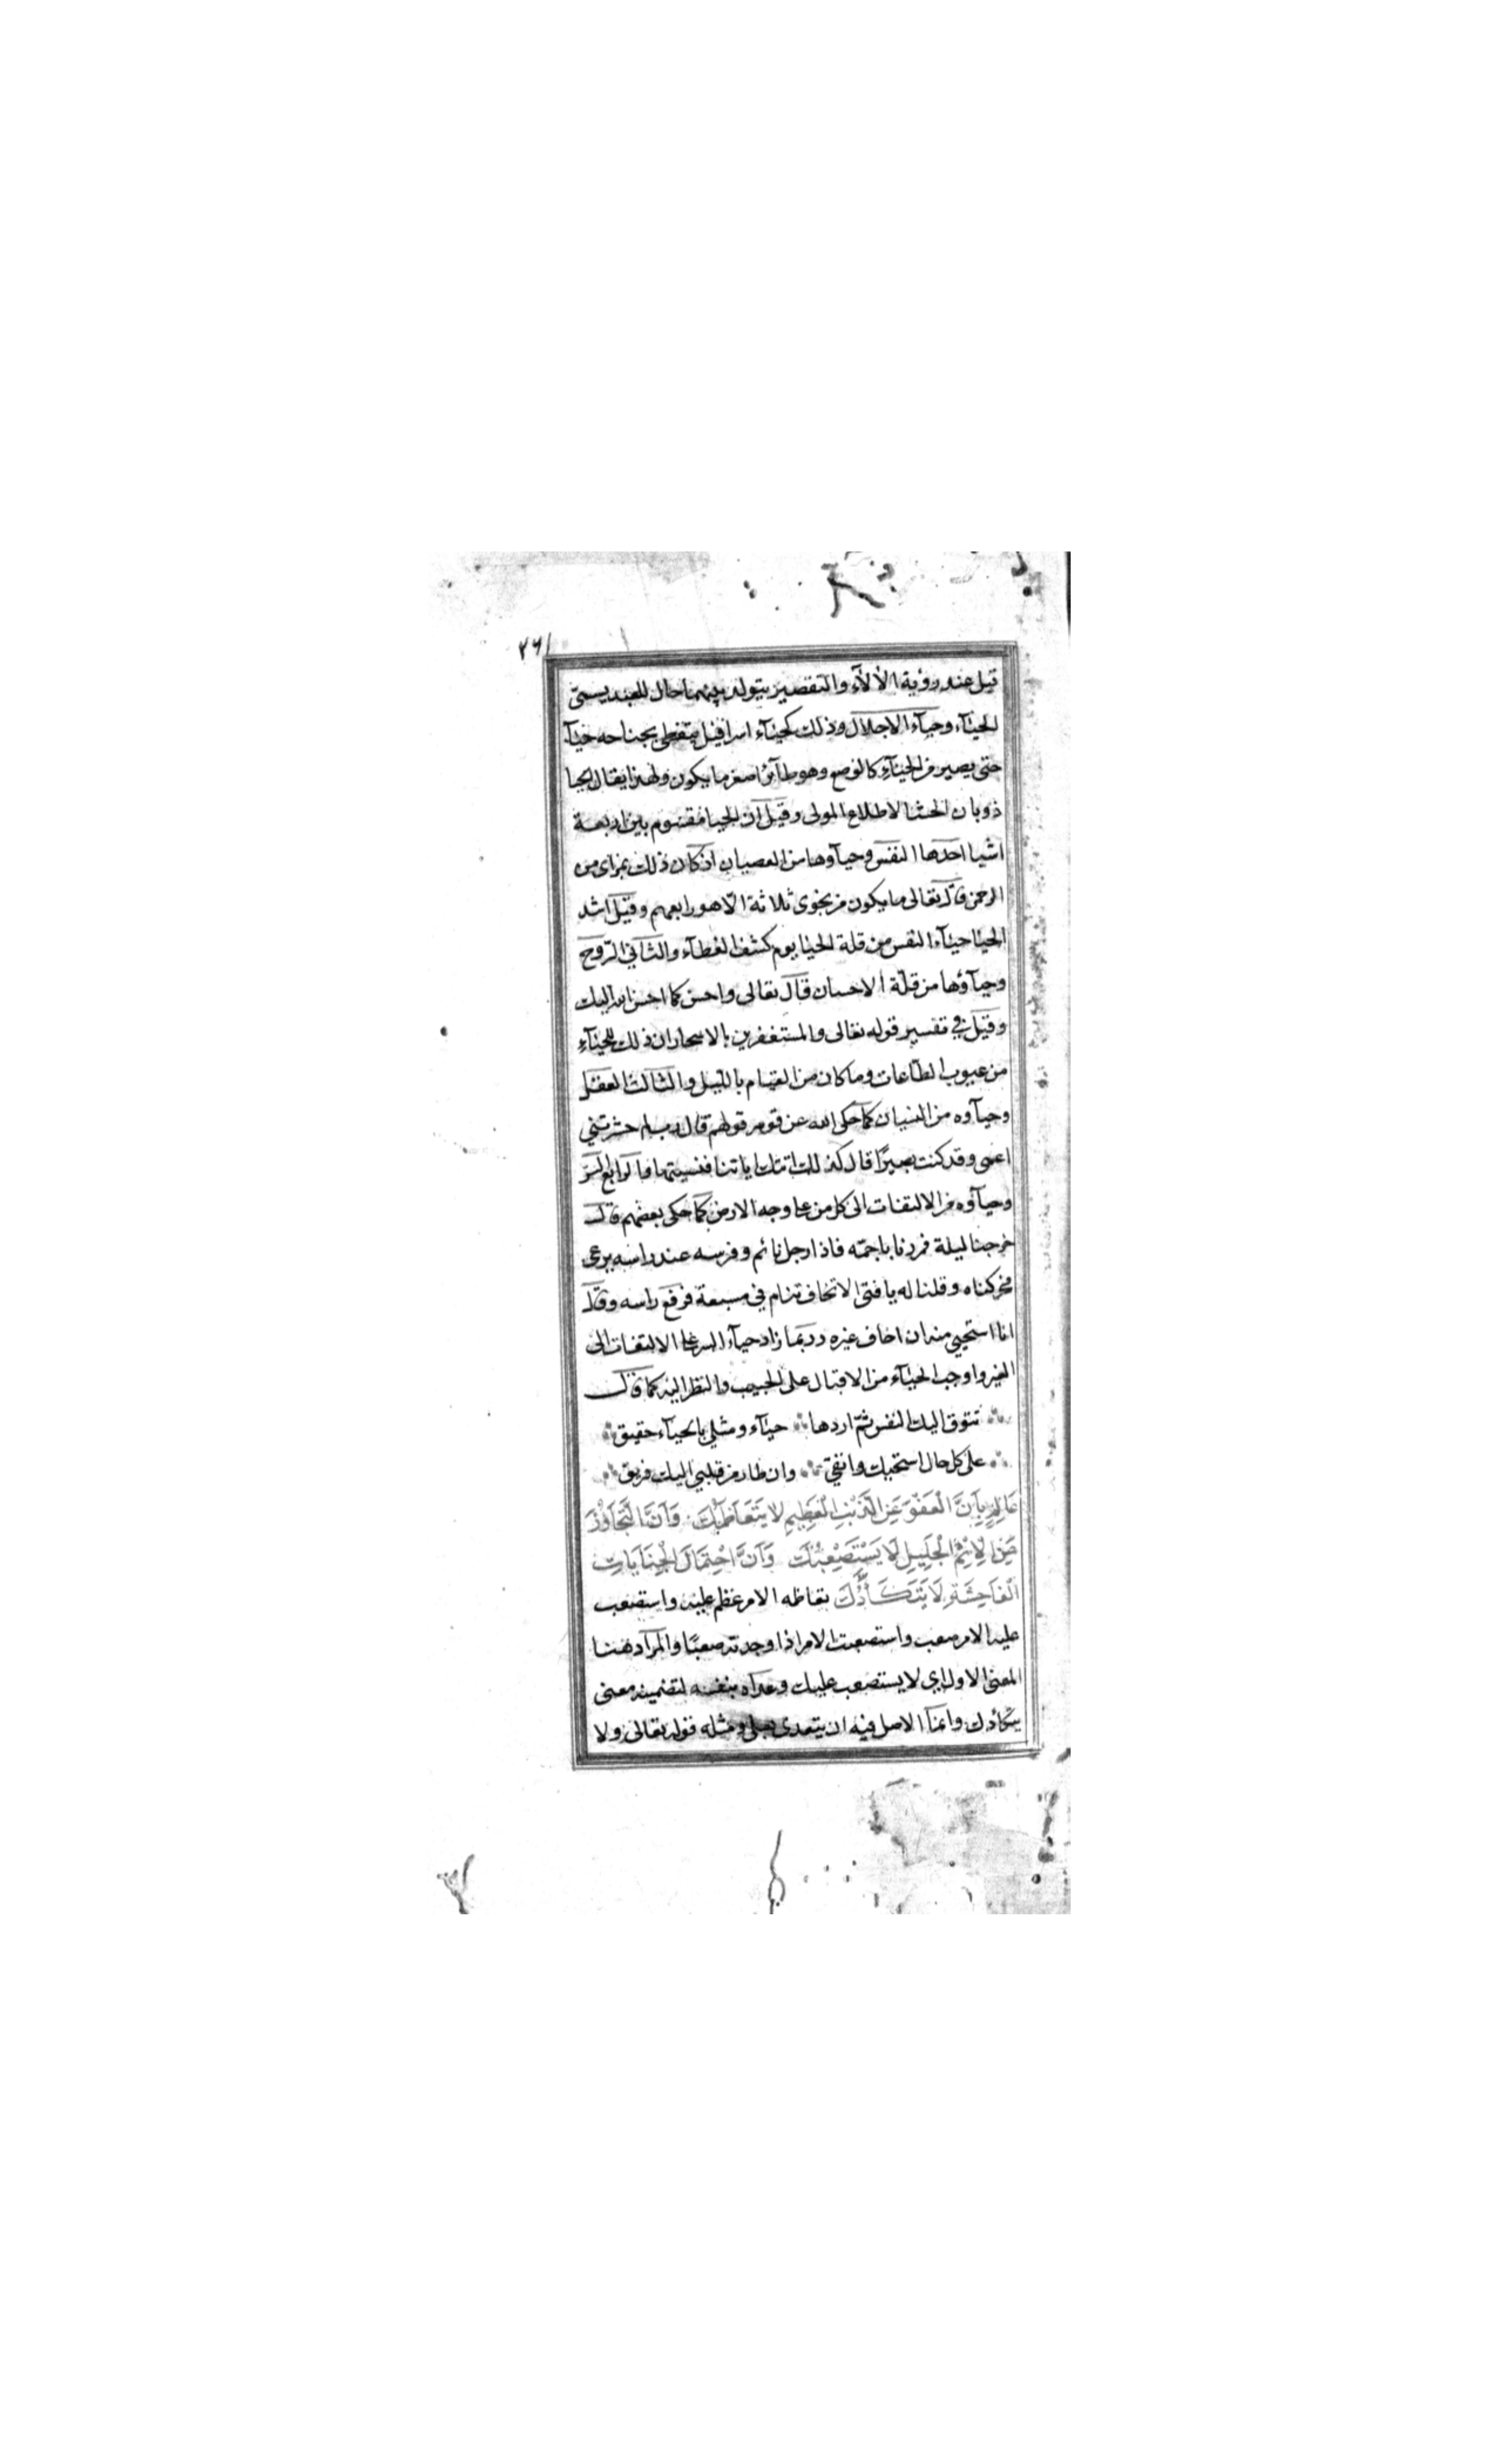 ٢٦١
قيل عند رؤية الألآء والتقصير يتولد بينهما حال للعبد يسمّى
الحيآء وحيآء الاجلال وذلك كحيآء اسرافيل يتغطى بجناحه حيآء
حتى يصير من الحيآء كالوصع وهو طآئر اصغر ما يكون ولهذا يقال الحيا
ذوبان الحشا لاطلاع المولى وقيل ان الحيا مقسوم بين اربعة
اشيا احدها النفس وحيآوها من العصيان اذ كان ذلك بمراى من
الرحمن قال تعالى ما يكون من نجوى ثلاثة الّا هو رابعهم وقيل اشد
الحيا حيآء النفس من قلة الحيا يوم كشف الغطآء والثاني الرّوح
وحيآؤها من قلّة الاحسان قال تعالى واحسن كما احسن الله اليك
وقيل في تفسير قوله تعالى والمستغفرين بالاسحار ان ذلك للحيآء
من عيوب الطّاعات وما كان من القيام بالليل والثالث العقل
وحيآوه من النسيان كما حكى الله عن قوم قولهم قال رب لم حشرتني
اعمى وقد كنت بصيرًا قال كذلك اتتك اياتنا فنسيتها والرابع السّر
وحيآؤه من الالتفات الى كل من على وجه الارض كما حكى بعضهم قال
خرجنا ليلة فمررنا باجمّه فاذا رجل نائم وفرسه عند راسه يرعى
فحركناه وقلنا له يا فتى الا تخاف تنام في مسبعة فرفع راسه وقال
انا استحيي منه ان اخاف غيره وربما زاد حيآء السر على الالتفات الى
الغير واوجب الحيآء من الاقبال على الحبيب والنظر اليه كما قال
تتوق اليك النفس ثمّ اردها حيآء ومثلي بالحيآء حقيق
على كل حال استحيك واتقي وان طار من قلبي اليك فريق
عَالِمٍ بِاَنَّ الْعَفْوَ عَنِ الذَّنْبِ الْعَظِيمِ لا يَتَعَاظَمُكَ وَاَنَّ التَّجَاوُزَ
عَنِ الْاِثْمِ الْجَلِيلِ لَا يَسْتَصْعِبُكَ وَاَنَّ احْتِمَالَ الْجِنَايَاتِ
الْفَاحِشَةِ لَا يَتَكَأَّدُكَ تعاظمه الامر عظم عليه واستصعب
عليه الامر صعب واستصعبت الامر اذا وجدته صعبًا والمراد هنا
المعنى الاول اي لا يستصعب عليك وعدّاه بنفسه لتضمينه معنى
يتكأدك وانمآ الاصل فيه ان يتعدى بعلى ومثله قوله تعالى ولا